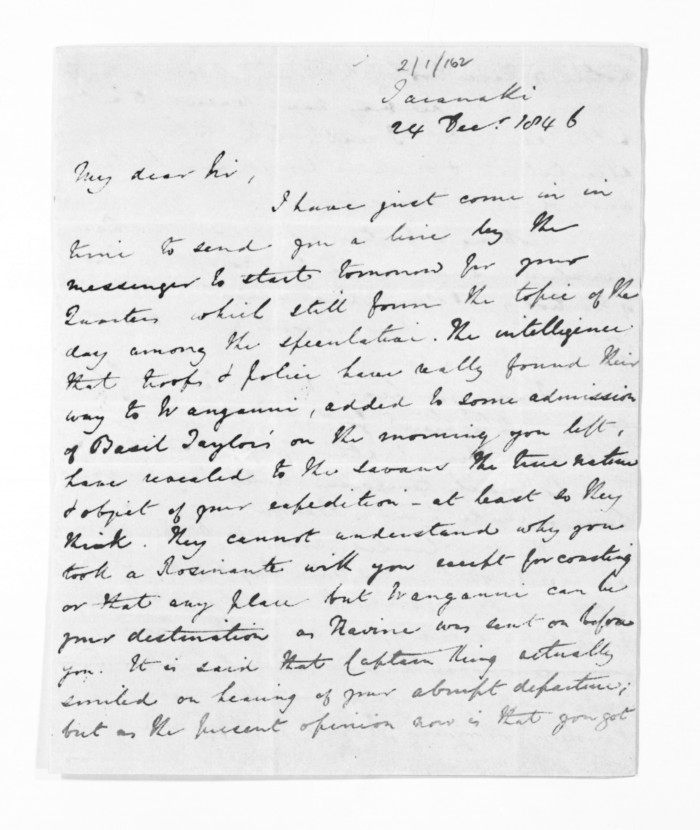 2/1/162
Taranaki
24 Decr. 1846
My dear Sir,
I have just come in in
time to send you a line by the
messenger to start tomorrow for your
Quarters which still form the topic of the
day among the speculative. The intelligence
that troops & Police have really found their
way to Wanganui, added to some admission
of Basil Taylor's on the morning you left,
have revealed to the savans the true nature
& object of your expedition - at least so they
think. They cannot understand why you
took a Rosinante with you except for coasting
or that any place but Wanganui can be
your destination as was sent on before
you. It is said that Captain King actually
smiled on hearing of your abrupt departure;
but as the present opinion now is that you got